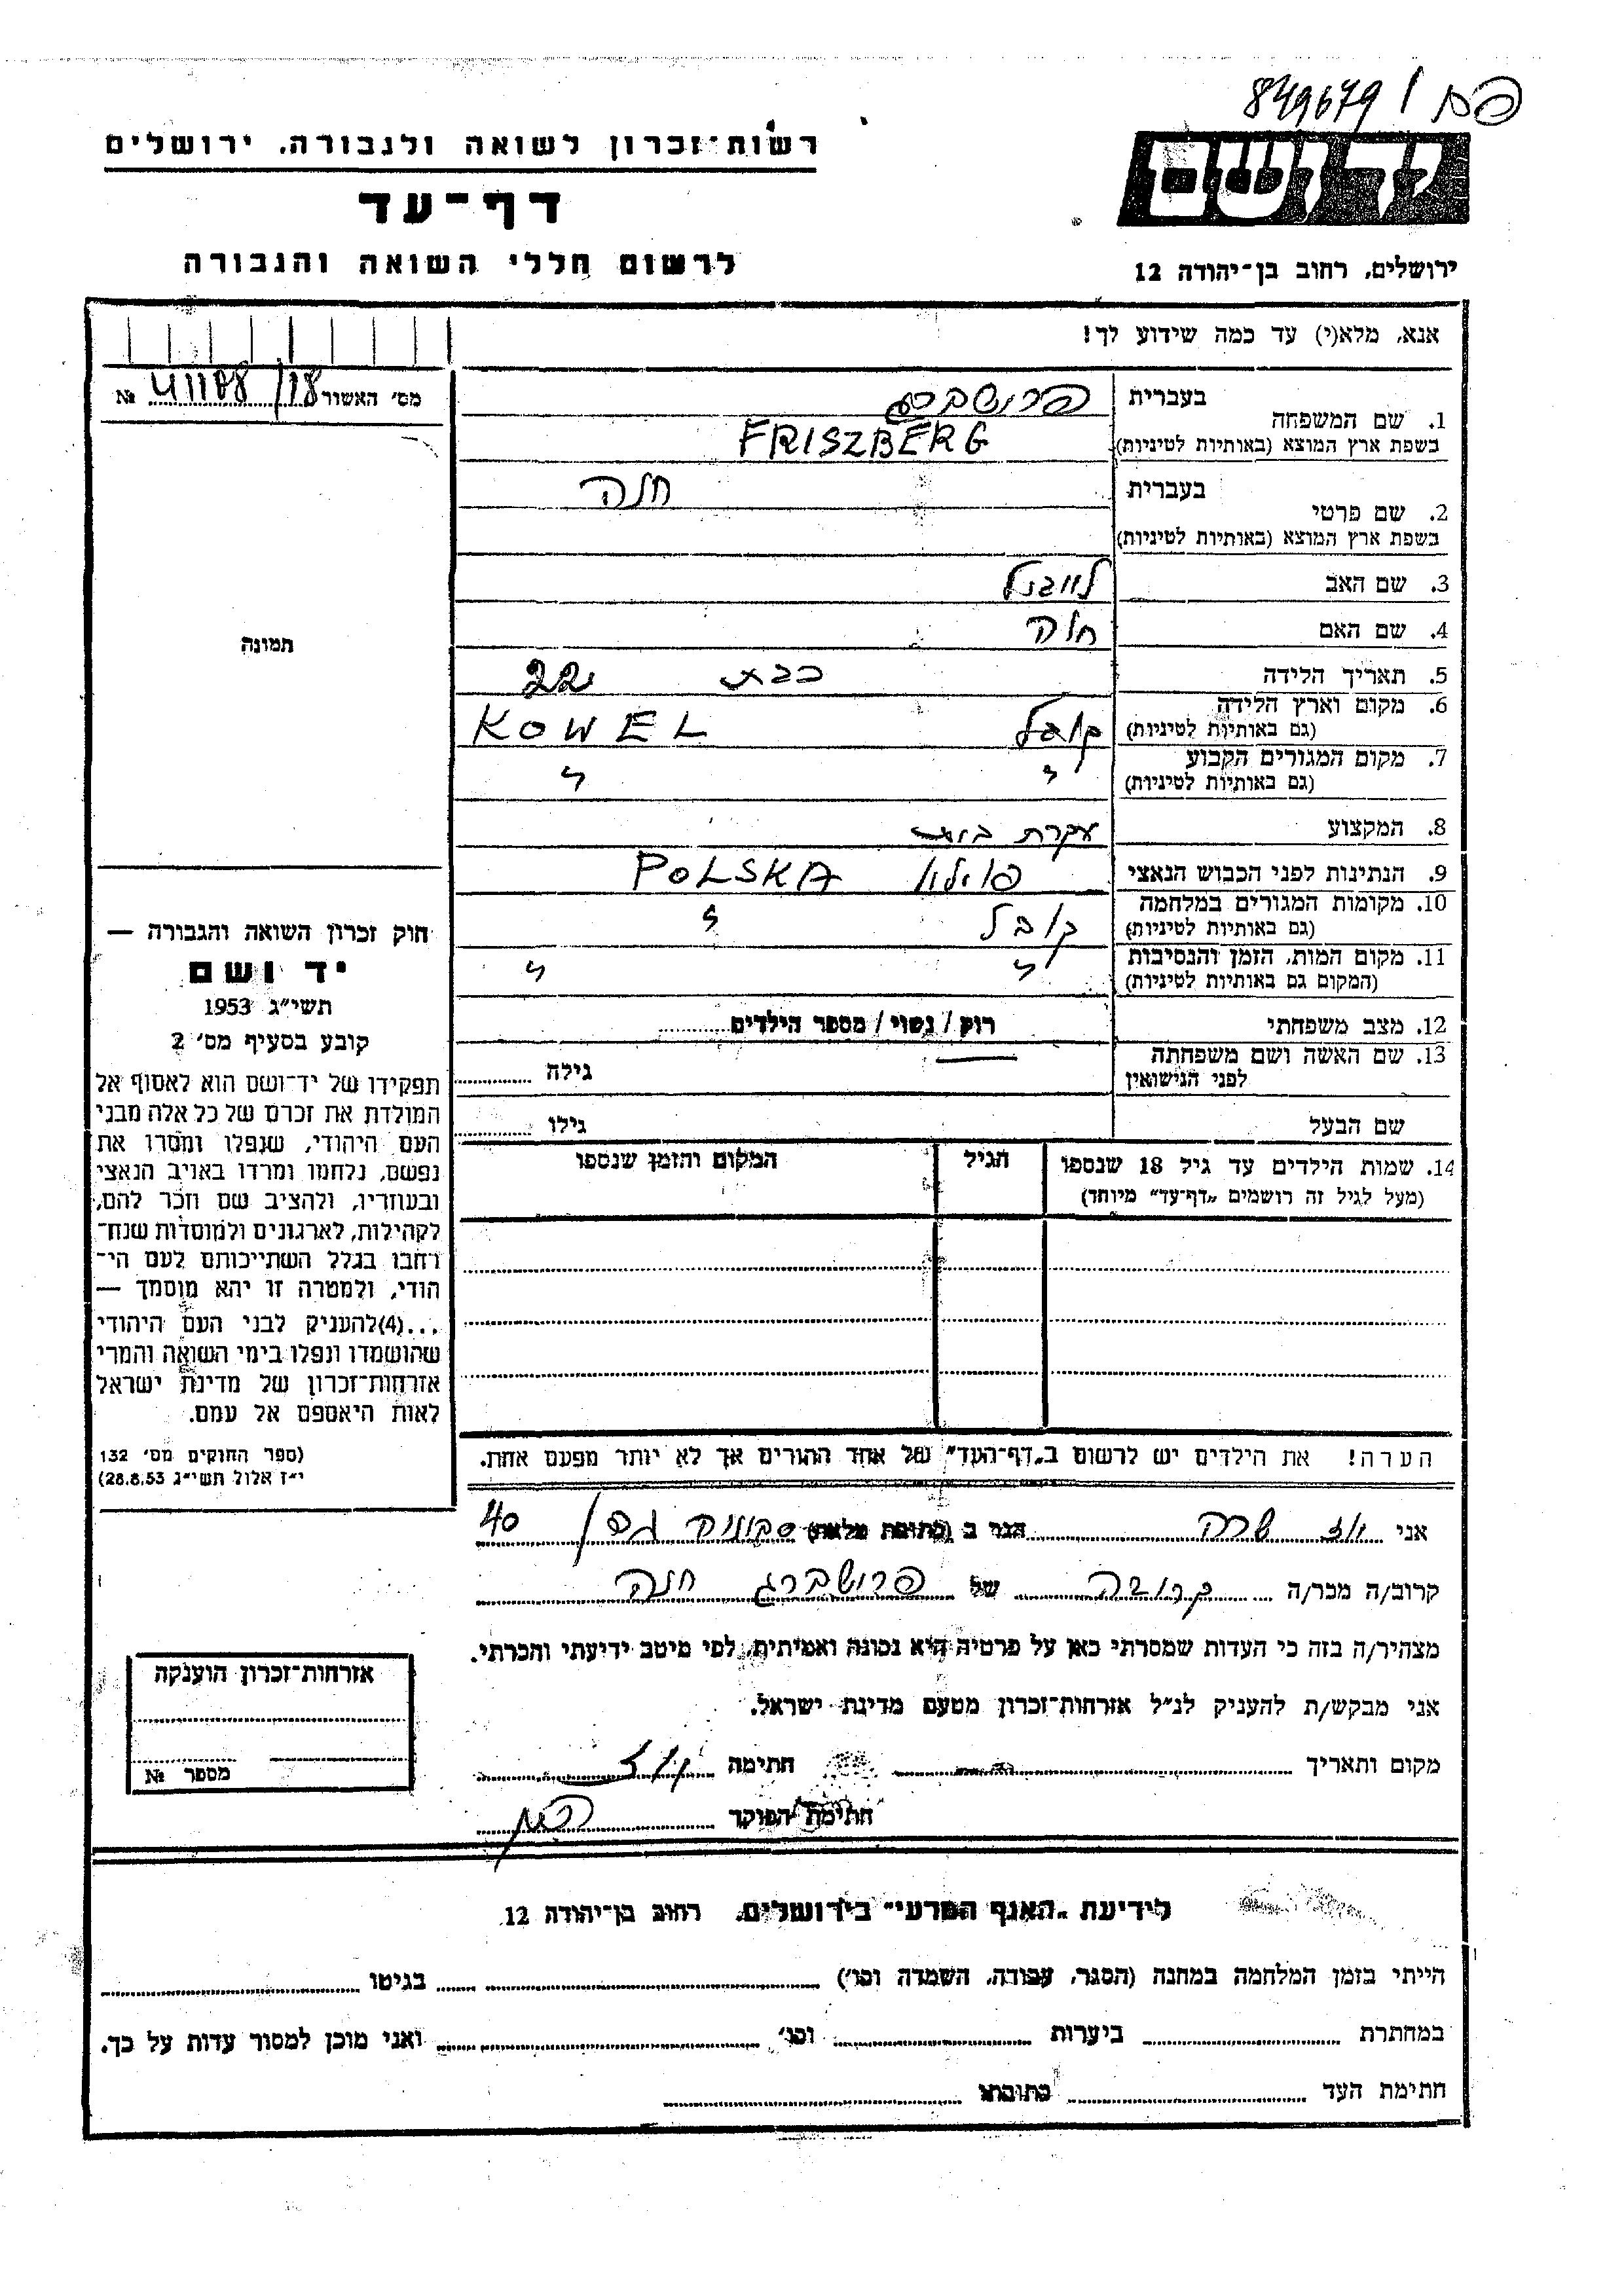 849679 /
רשות־זכרון לשואה ולגבורה. ירושלים
יד ושם
דף־עד
לרשום חללי השואה והגבורה
ירושלים, רחוב בן־יהודה 12
אנא, מלא(י) עד כמה שידוע לך!
מס׳ האשור 41188/18 №
בעברית
1. שם המשפחה
בשפת ארץ המוצא (באותיות לטיניות)
FRISZBERG
בעברית
2. שם פרטי
חנה
בשפת ארץ המוצא (באותיות לטיניות)
3. שם האב
4. שם האם
5. תאריך הלידה כבת 22
6. מקום וארץ הלידה
(גם באותיות לטיניות)
קובל KOWEL
7. מקום המגורים הקבוע
(גם באותיות לטיניות)
" "
8. המקצוע עקרת בית
9. הנתינות לפני הכבוש הנאצי פולין POLSKA
10. מקומות המגורים במלחמה
(גם באותיות לטיניות)
קובל "
11. מקום המות, הזמן והנסיבות
(המקום גם באותיות לטיניות)
" "
12. מצב משפחתי רוק / נשוי / מספר הילדים
13. שם האשה ושם משפחתה
לפני הנישואין
גילה
שם הבעל גילו
14. שמות הילדים עד גיל 18 שנספו הגיל המקום והזמן שנספו
(מעל לגיל זה רושמים „דף־עד” מיוחד)
הערה! את הילדים יש לרשום ב„דף־העד” של אחד ההורים אך לא יותר מפעם אחת.
תמונה
חוק זכרון השואה והגבורה —
יד ושם
תשי״ג 1953
קובע בסעיף מס׳ 2
תפקידו של יד־ושם הוא לאסוף אל
המולדת את זכרם של כל אלה מבני
העם היהודי, שנפלו ומסרו את
נפשם, נלחמו ומרדו באויב הנאצי
ובעוזריו, ולהציב שם וזכר להם,
לקהילות, לארגונים ולמוסדות שנח־
רחבו בגלל השתייכותם לעם הי־
הודי, ולמטרה זו יהא מוסמך —
...(4)להעניק לבני העם היהודי
שהושמדו ונפלו בימי השואה והמרי
אזרחות־זכרון של מדינת ישראל
לאות היאספם אל עמם.
(ספר החוקים מס׳ 132
י״ז אלול תשי״ג 28.8.53)
אני שרה הגר ב (כתובת מלאה) 40
קרוב/ה מכר/ה קרובה של פרושברג חנה
מצהיר/ה בזה כי העדות שמסרתי כאן על פרטיה היא נכונה ואמיתית, לפי מיטב ידיעתי והכרתי.
אני מבקש/ת להעניק לנ״ל אזרחות־זכרון מטעם מדינת ישראל.
מקום ותאריך חתימה
חתימת הפוקד
אזרחות־זכרון הוענקה
מספר №
לידיעת „האגף המדעי” בירושלים, רחוב בן־יהודה 12
הייתי בזמן המלחמה במחנה (הסגר, עבודה, השמדה וכו׳) בגיטו
במחתרת ביערות וכו׳ ואני מוכן למסור עדות על כך.
חתימת העד כתובתו